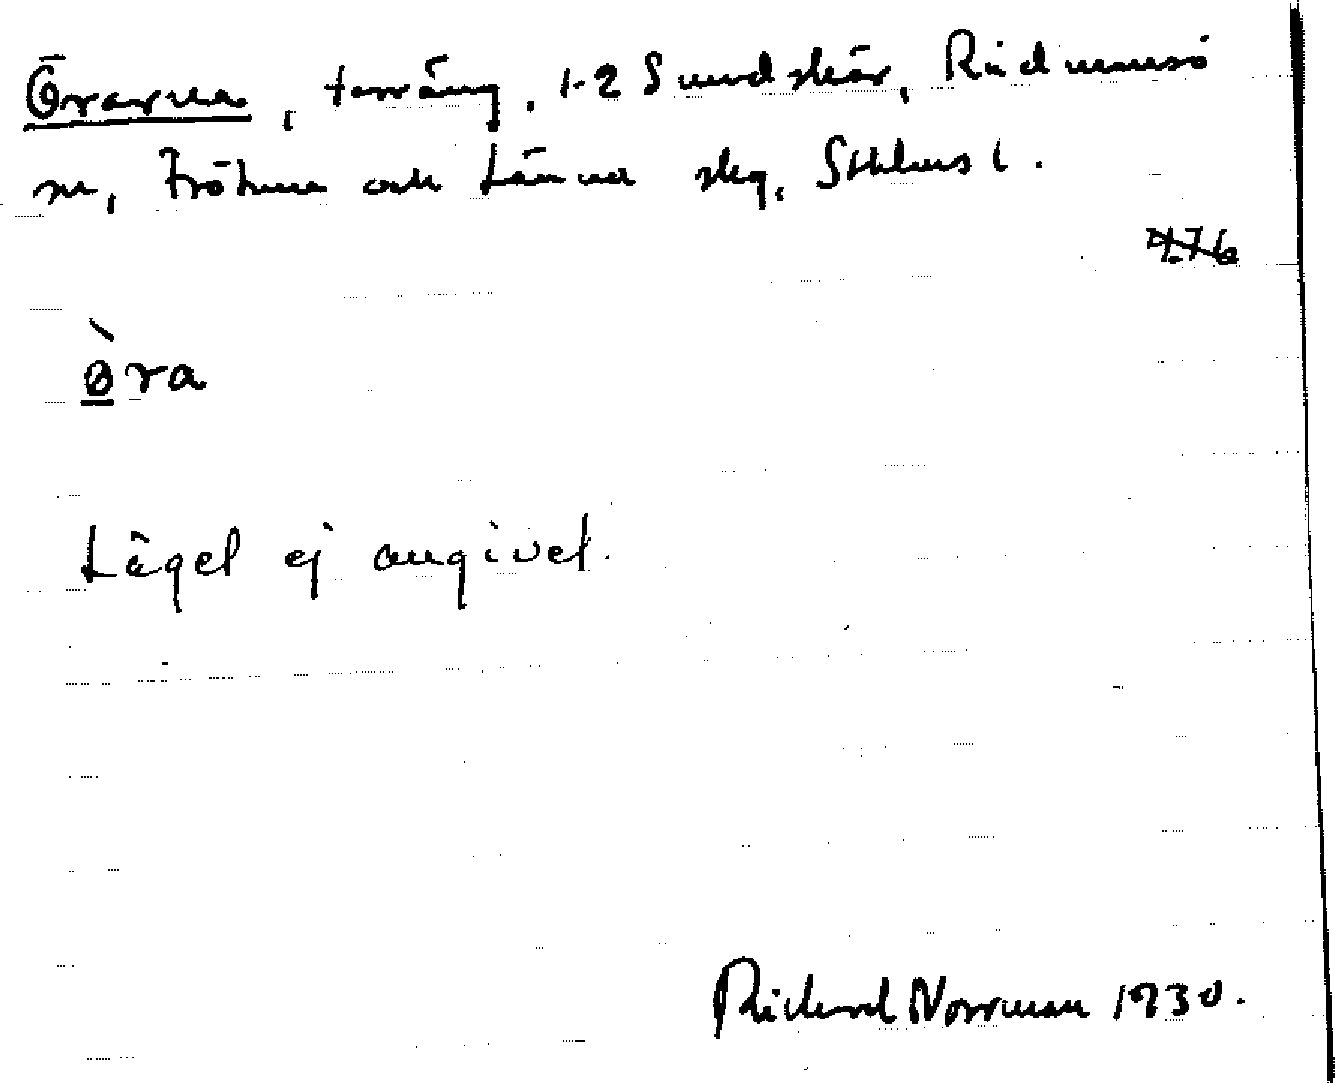 Örarna, terräng, 1-2 Sundskär, Rådmansö
sn, Frötuna och Länna skg, Sthlms l.
476
òra
Läget ej angivet.
Rickard Norrman 1930.